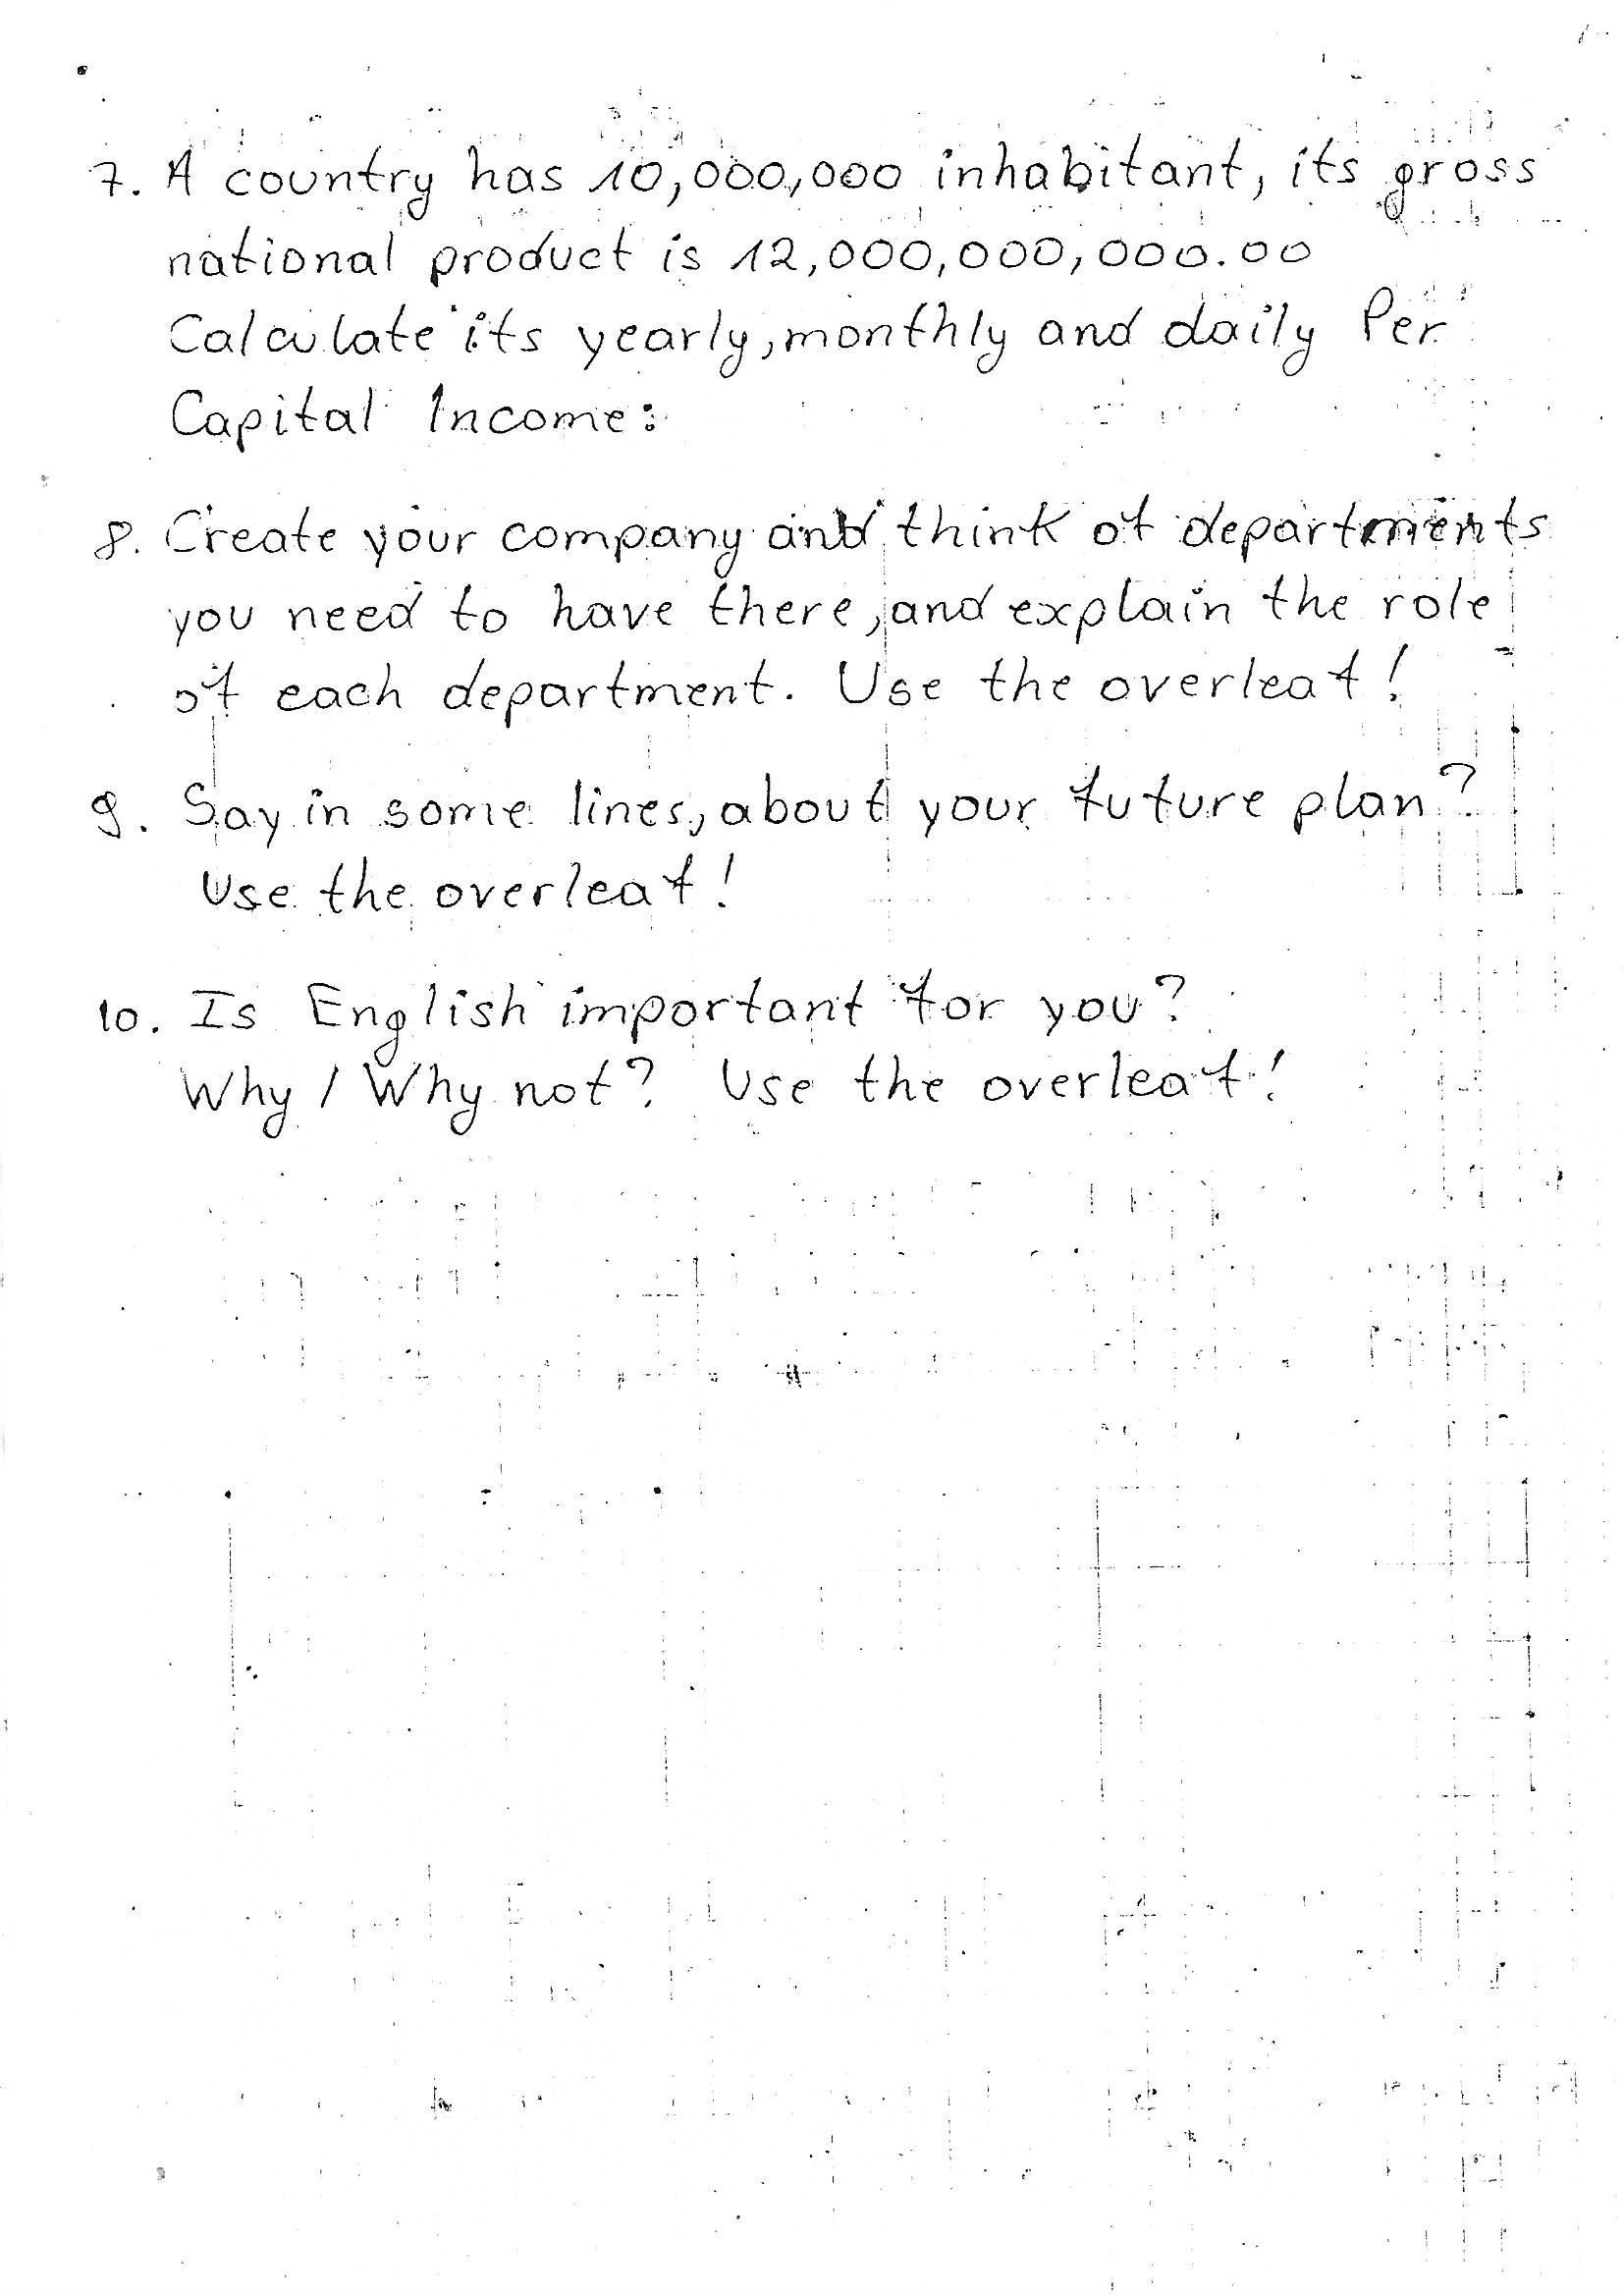 7. A country has 10,000,000 inhabitant, its gross
national product is 12,000,000,000.00
Calculate its yearly, monthly and daily Per
Capital Income:
8. Create your company and think of departments
you need to have there, and explain the role
of each department. Use the overleaf!
9. Say in some lines, about your future plan?
Use the overleaf!
10. Is English important for you?
Why / Why not? Use the overleaf!